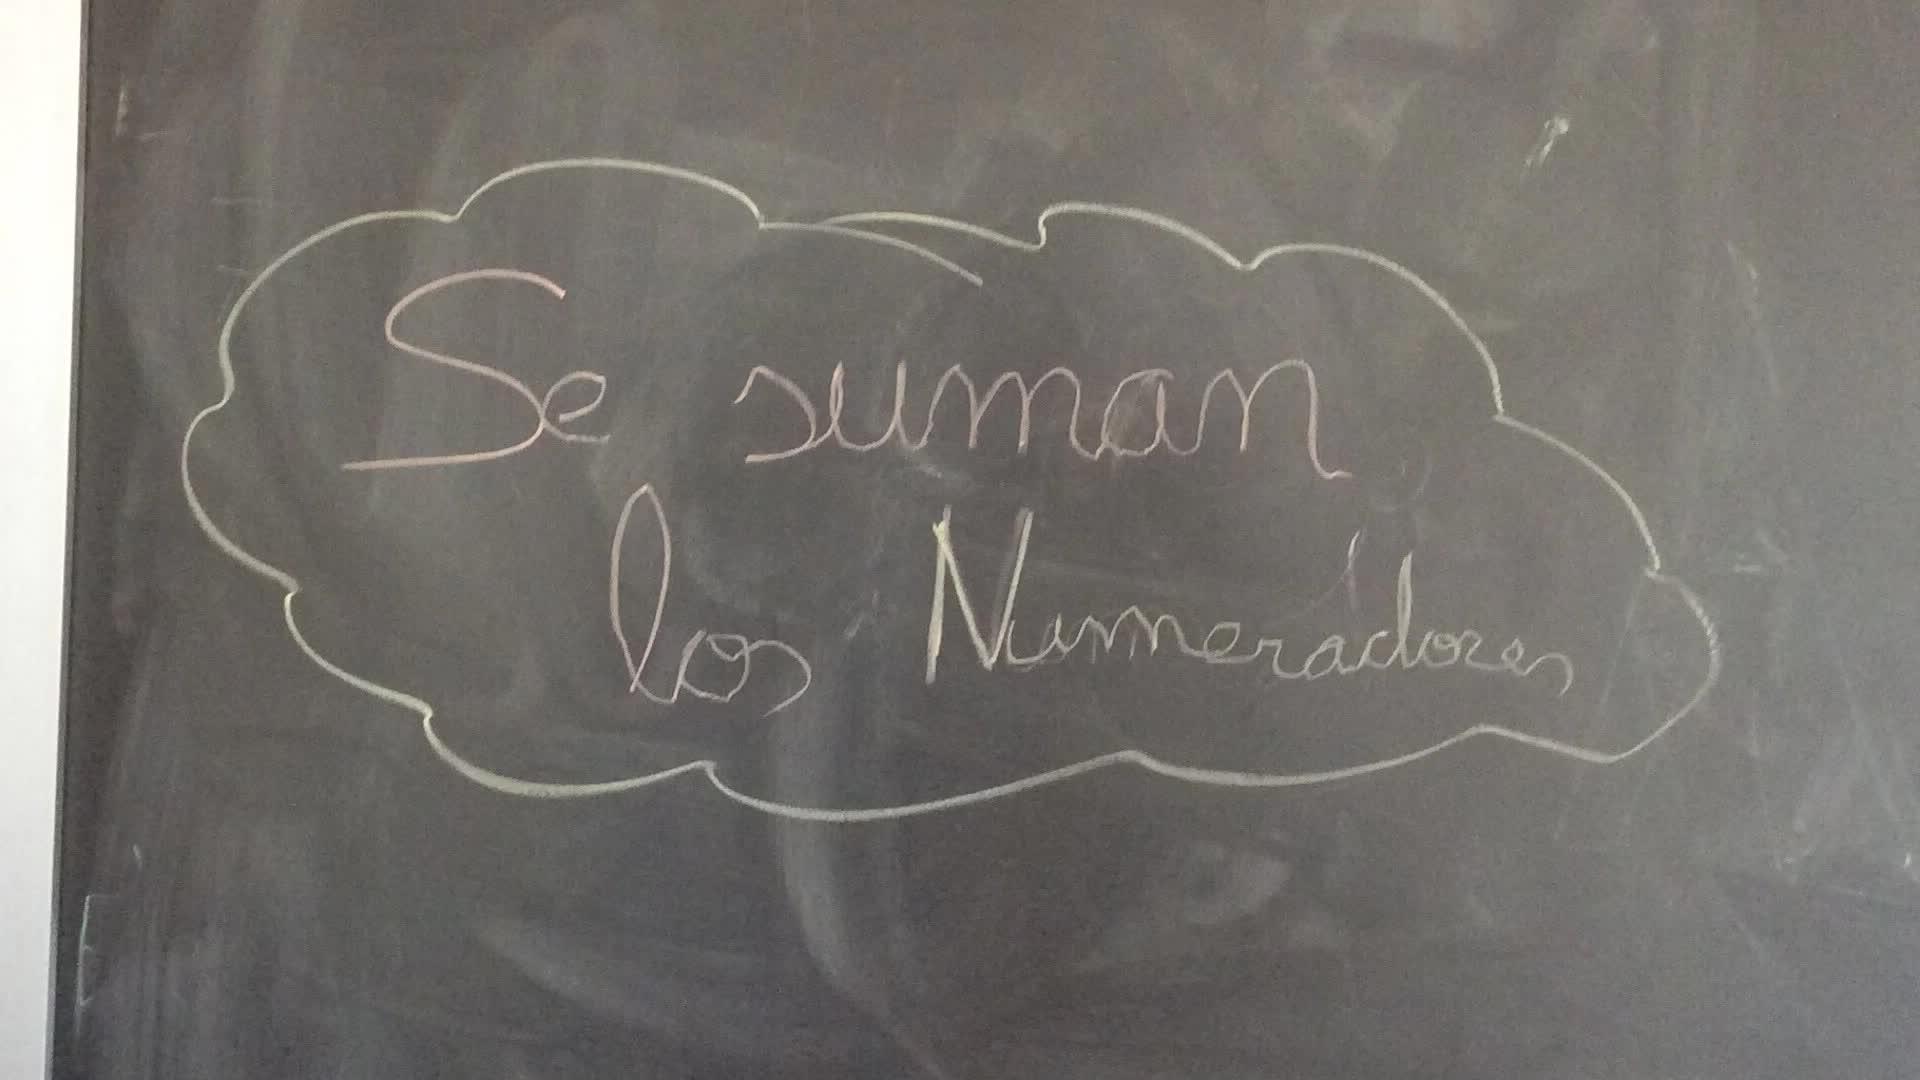 Se suman
los Numeradores